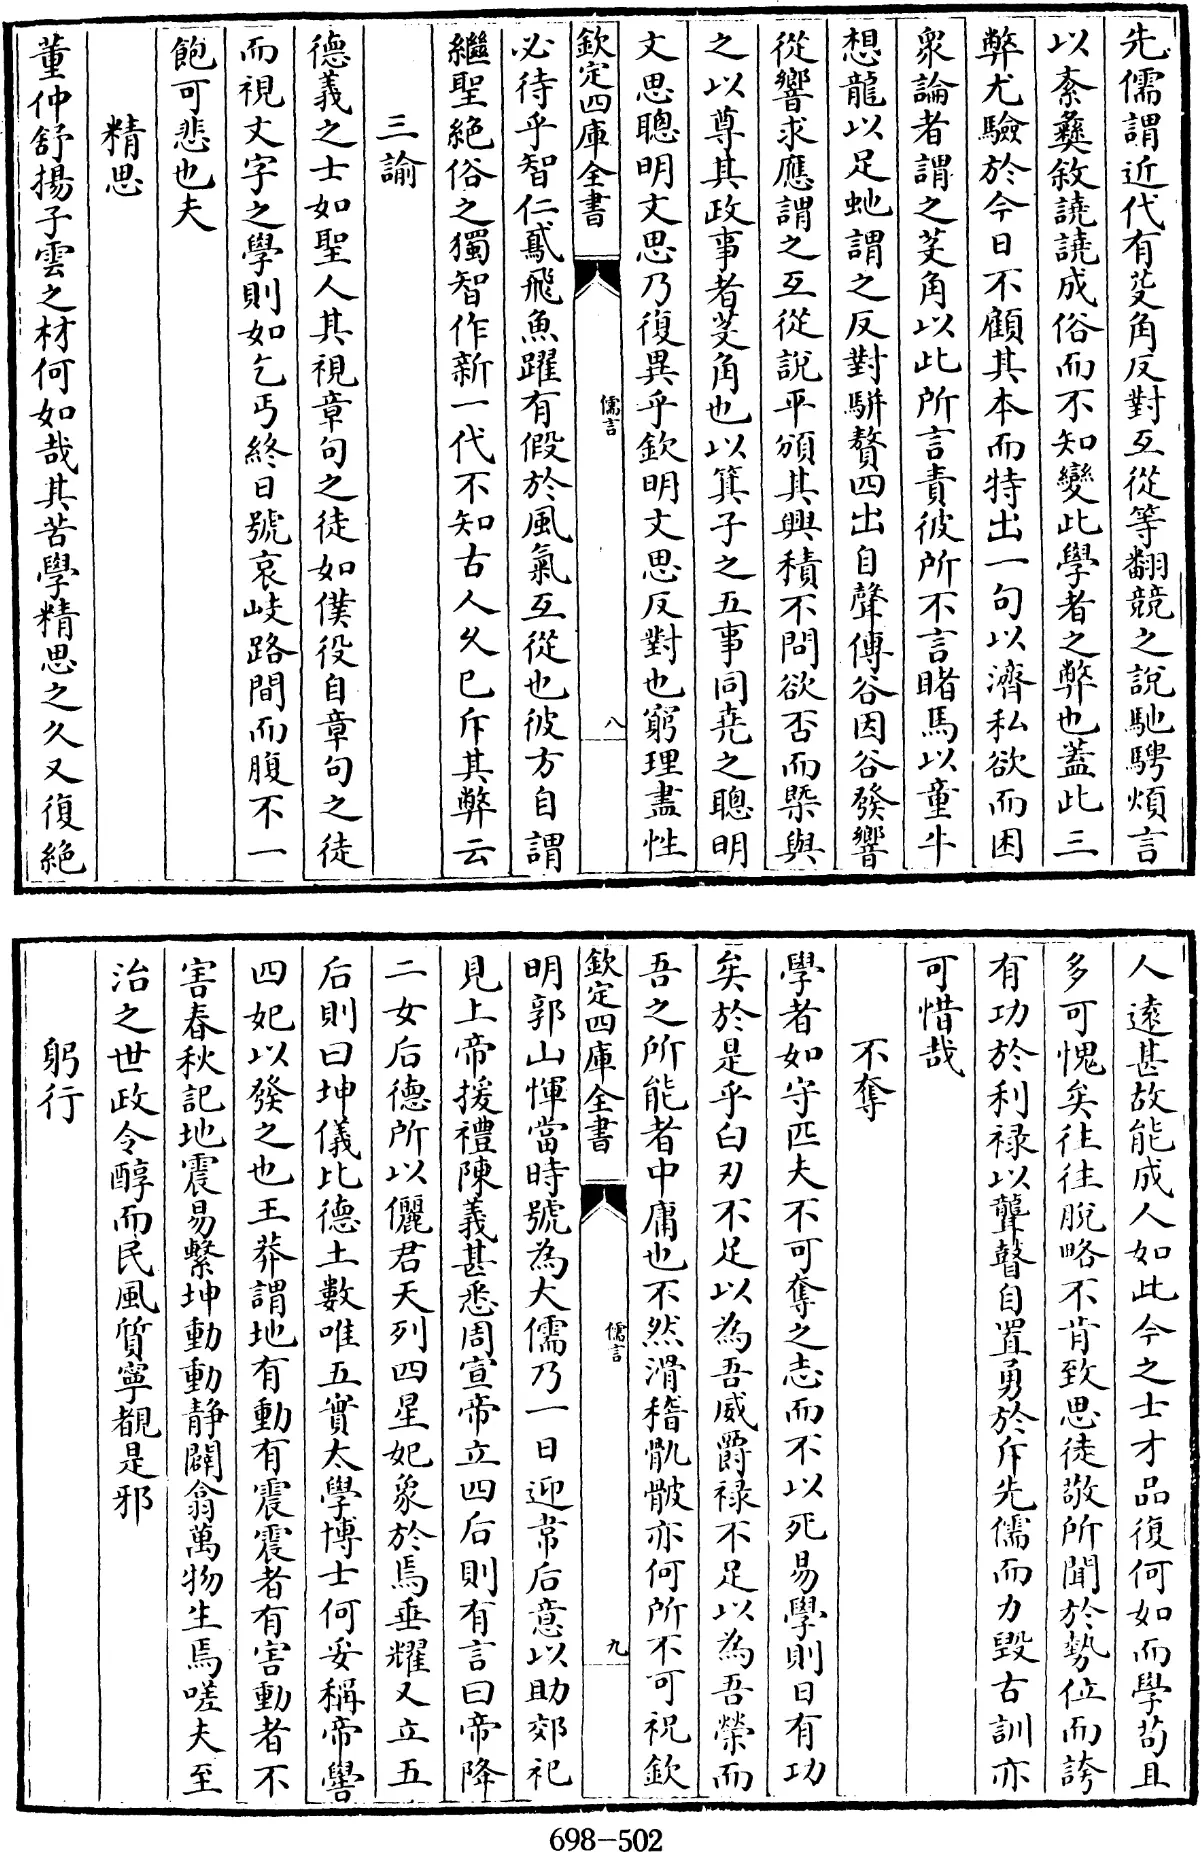 先儒謂近代有芟角反對互從等翻競之說馳騁煩言
以紊彝敘譊譊成俗而不知變此學者之弊也蓋此三
弊尤驗於今日不顧其本而特出一句以濟私欲而困
衆論者謂之芟角以此所言責彼所不言睹馬以童牛
想龍以足虵謂之反對駢贅四出自聲傳谷因谷發響
從響求應謂之互從說平頒其興積不問欲否而槩與
之以尊其政事者芟角也以箕子之五事同堯之聰明
文思聰明文思乃復異乎欽明文思反對也窮理盡性
欽定四庫全書
儒言
八
必待乎智仁鳶飛魚躍有假於風氣互從也彼方自謂
繼聖絶俗之獨智作新一代不知古人久已斥其弊云
三諭
德義之士如聖人其視章句之徒如僕役自章句之徒
而視文字之學則如乞丐終日號哀岐路間而腹不一
飽可悲也夫
精思
董仲舒揚子雲之材何如哉其苦學精思之久又復絶
人遠甚故能成人如此今之士才品復何如而學苟且
多可愧矣往往脫略不肯致思徒敬所聞於勢位而誇
有功於利祿以聾瞽自置勇於斥先儒而力毀古訓亦
可惜哉
不奪
學者如守匹夫不可奪之志而不以死易學則日有功
矣於是乎白刃不足以為吾威爵祿不足以為吾榮而
吾之所能者中庸也不然滑稽骩骳亦何所不可祝欽
欽定四庫全書
儒言
九
明郭山惲當時號為大儒乃一日迎常后意以助郊祀
見上帝援禮陳義甚悉周宣帝立四后則有言曰帝降
二女后德所以儷君天列四星妃象於焉垂耀又立五
后則曰坤儀比德土數唯五實太學博士何妥稱帝嚳
四妃以發之也王莽謂地有動有震震者有害動者不
害春秋記地震易繫坤動動靜闢翕萬物生焉嗟夫至
治之世政令醇而民風質寧覩是邪
躬行
698-502